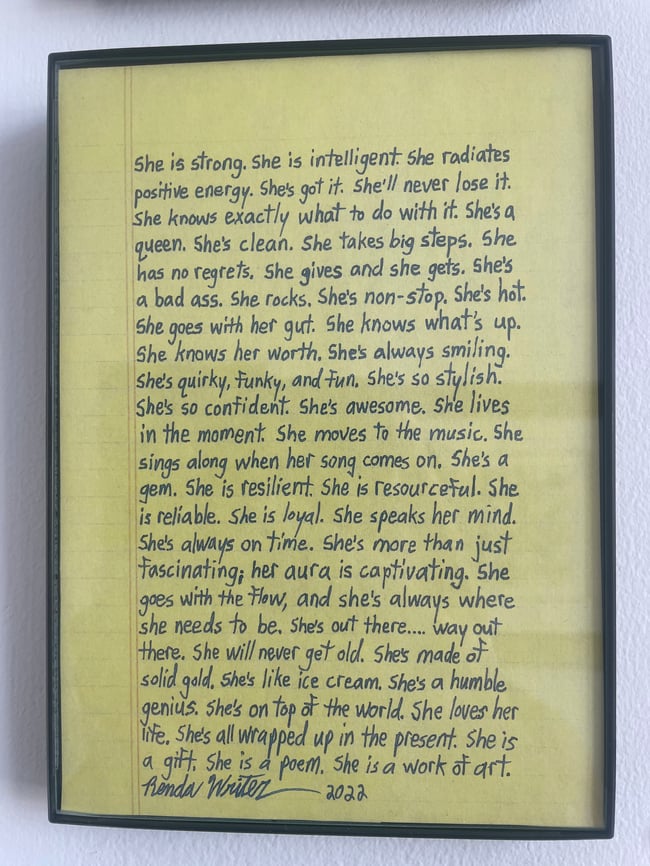 She is strong. She is intelligent. She radiates
positive energy. She's got it. She'll never lose it.
She knows exactly what to do with it. She's a
queen. She's clean. She takes big steps. She
has no regrets. She gives and she gets. She's
a bad ass. She rocks. She's non-stop. She's hot.
She goes with her gut. She knows what's up.
She knows her worth. She's always smiling.
She's quirky, funky, and fun. She's so stylish.
She's so confident. She's awesome. She lives
in the moment. She moves to the music. She
sings along when her song comes on. She's a
gem. She is resilient. She is resourceful. She
is reliable. She is loyal. She speaks her mind.
She's always on time. She's more than just
fascinating; her aura is captivating. She
goes with the flow, and she's always where
she needs to be. She's out there.... way out
there. She will never get old. She's made of
solid gold. She's like ice cream. She's a humble
genius. She's on top of the world. She loves her
life. She's all wrapped up in the present. She is
a gift. She is a poem. She is a work of art.
Renda Writer 2022